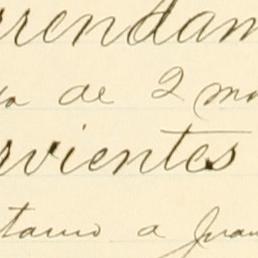 rrendam
a de 2 m
rvientes
tario a Juan